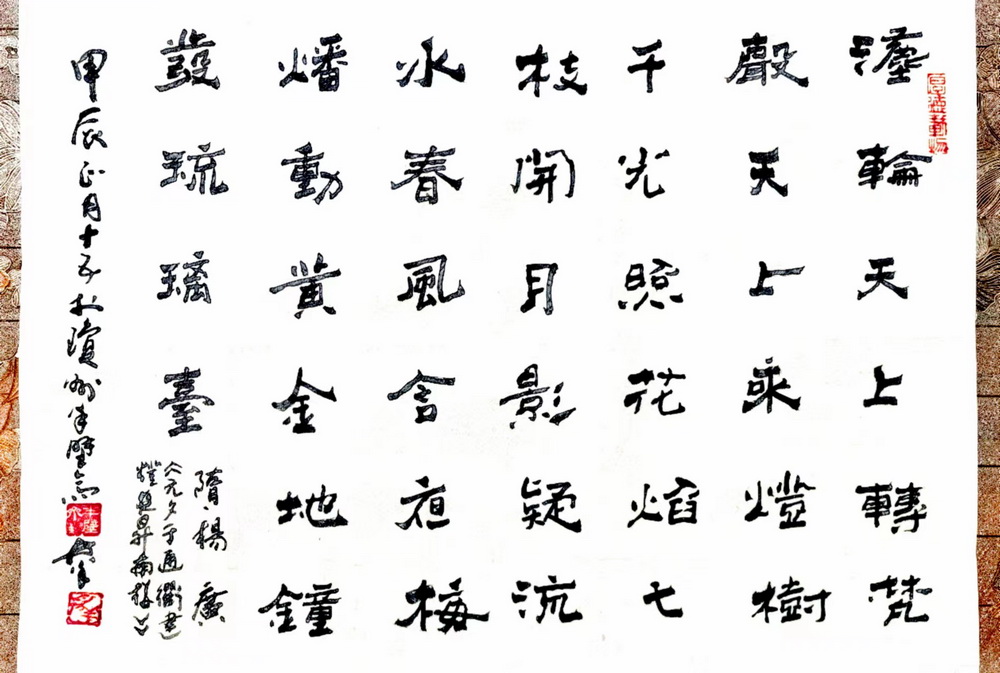 灋輪天上轉梵
聲天上來燈樹
千光照花焰七
枝開月影疑流
水春風含夜梅
燔動黃金地鐘
發琉璃臺
隋·楊廣
《元夕于通衢建
燈夜昇南樓》
甲辰正月十五於瓊州半壁齋